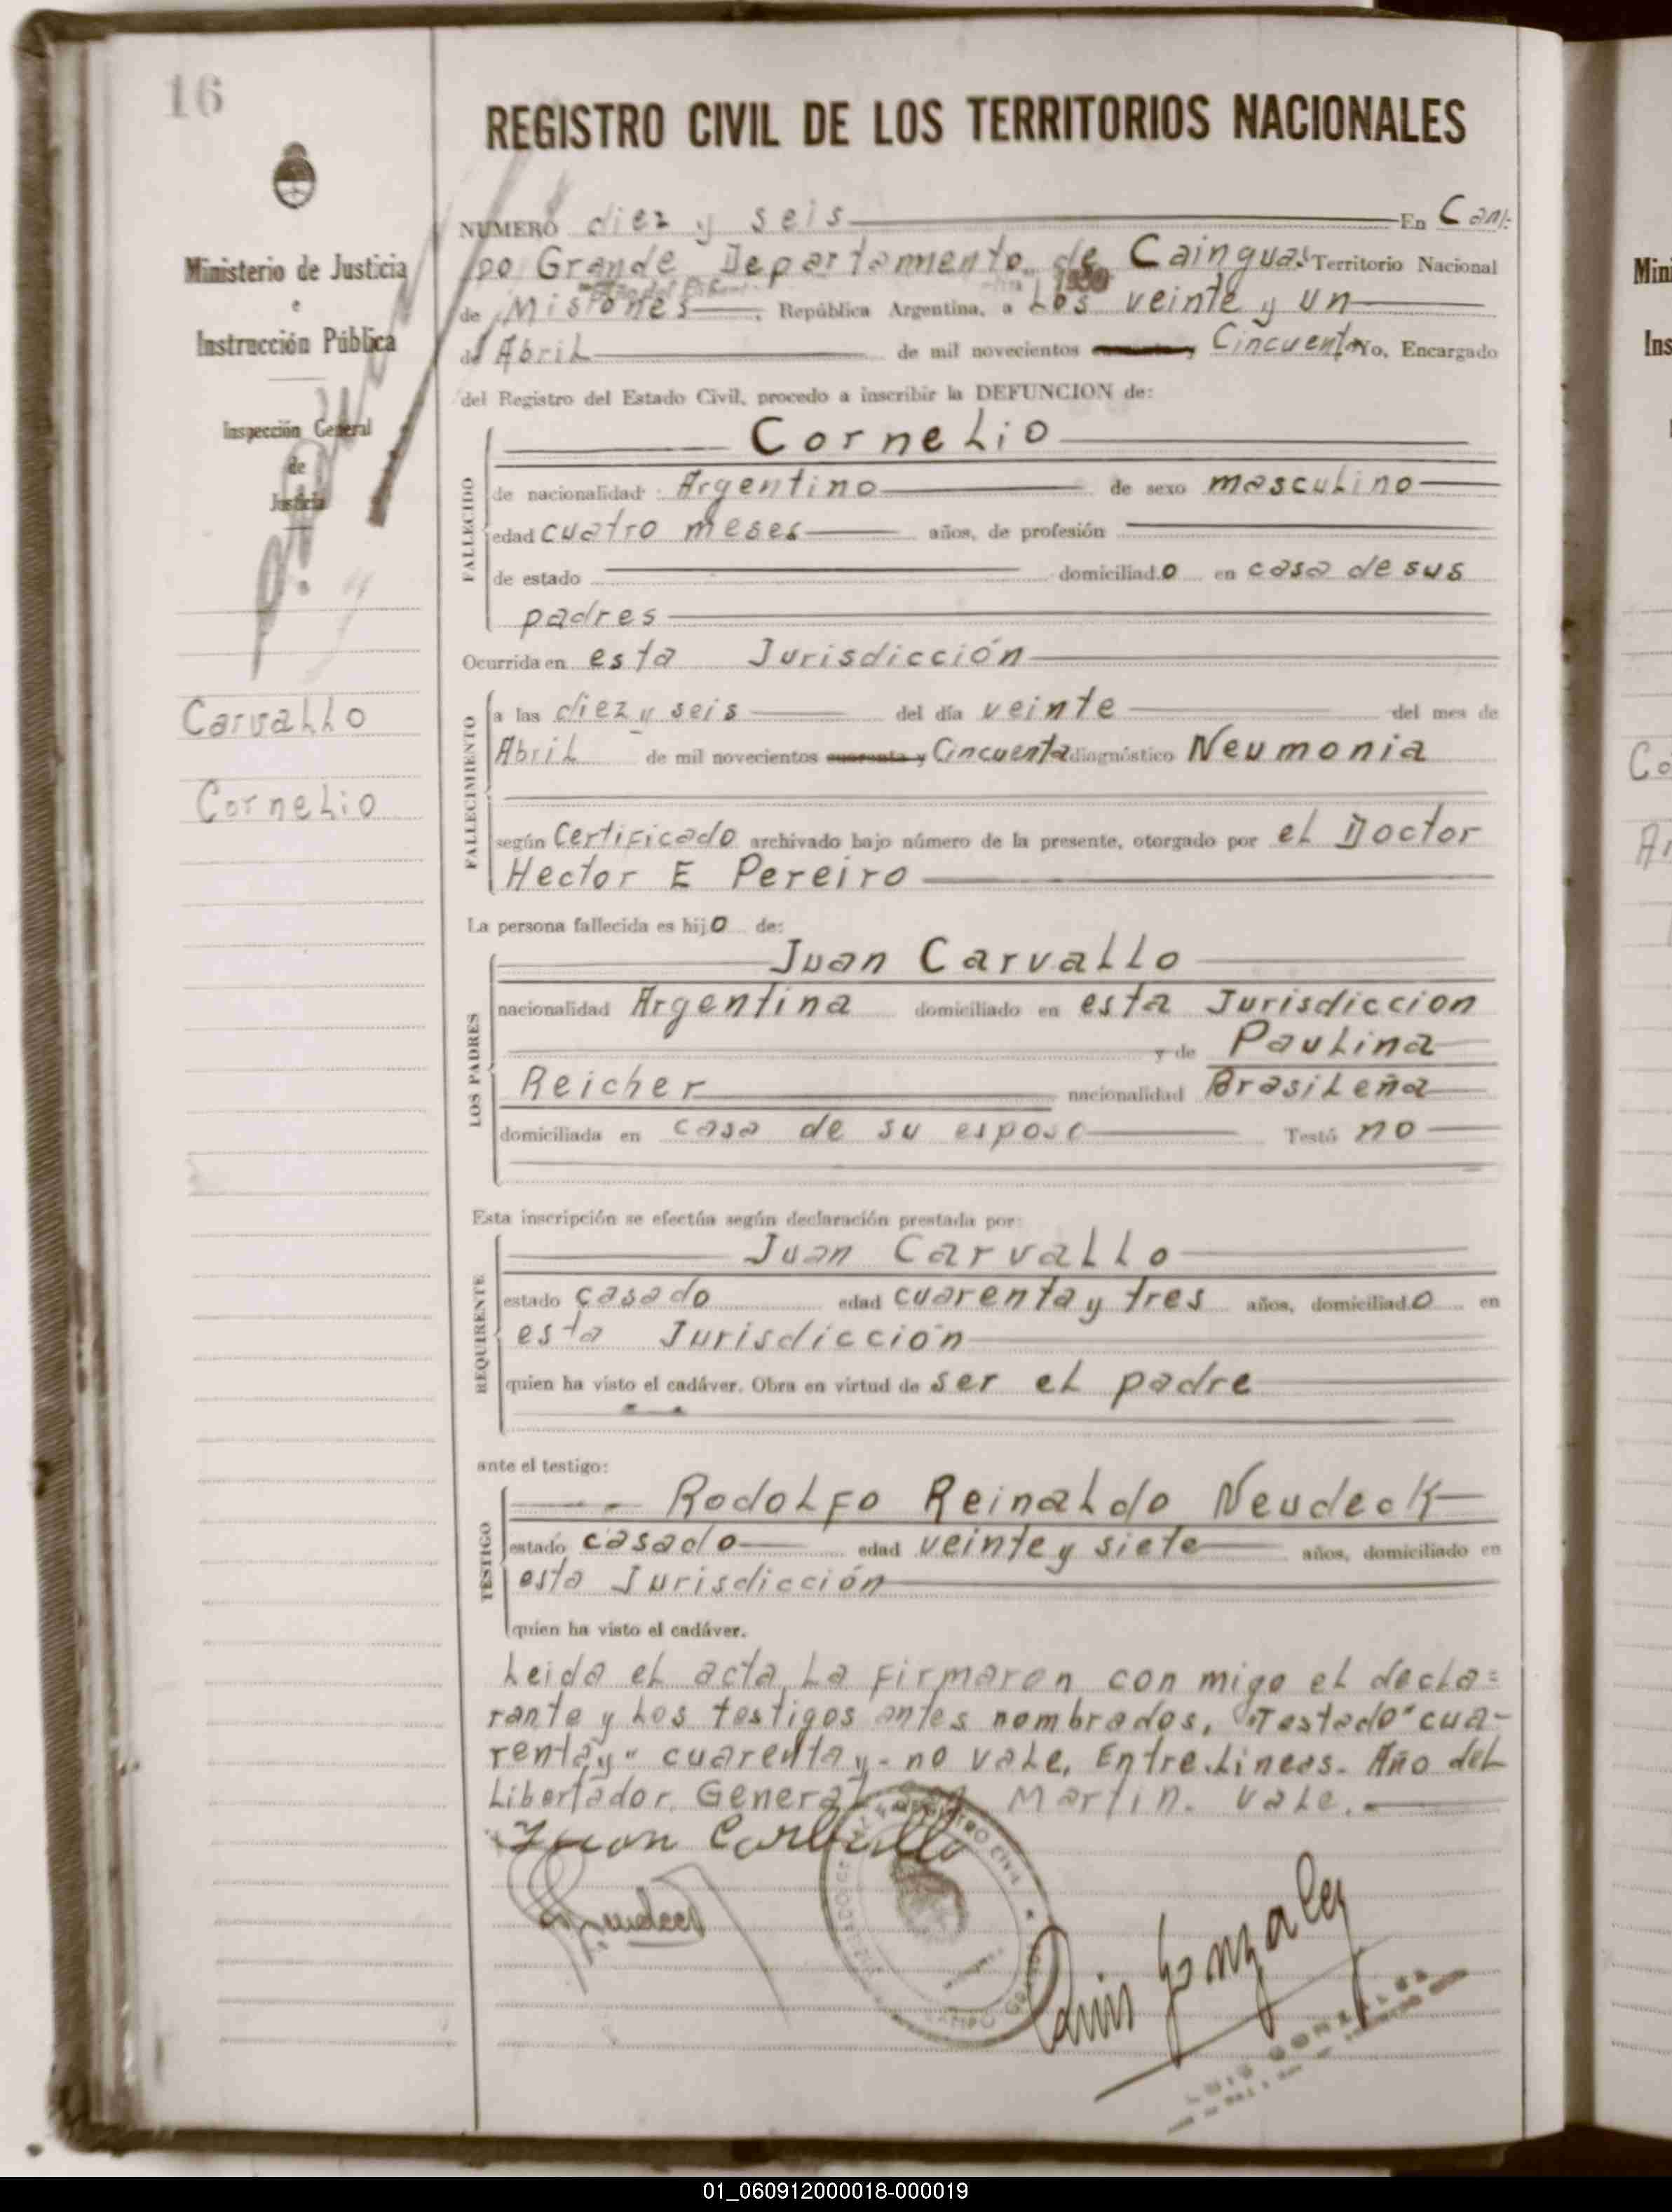 16
REGISTRO CIVIL DE LOS TERRITORIOS NACIONALES
Ministerio de Justicia
e
Instrucción Pública
Inspección General
de
Justicia
Carvallo
Cornelio
NUMERO diez y seis En Cam=
po Grande Departamento de Cainguas Territorio Nacional
1950
de Misiones, República Argentina, a los veinte y un
de Abril de mil novecientos cuarenta y Cincuenta Yo, Encargado
del Registro del Estado Civil, procedo a inscribir la DEFUNCION de:
FALLECIDO
Cornelio
de nacionalidad Argentino de sexo masculino
edad cuatro meses años, de profesión
de estado domiciliado en casa de sus
padres
Ocurrida en esta Jurisdicción
FALLECIMIENTO
a las diez y seis del día veinte del mes de
Abril de mil novecientos cuarenta y Cincuenta diagnóstico Neumonia
según Certificado archivado bajo número de la presente, otorgado por el Doctor
Hector E Pereiro
La persona fallecida es hijo de:
LOS PADRES
Juan Carvallo
nacionalidad Argentina domiciliado en esta Jurisdiccion
y de Paulina
Reicher nacionalidad Brasileña
domiciliada en casa de su esposo Testó no
Esta inscripción se efectúa según declaración prestada por:
REQUIRENTE
Juan Carvallo
estado casado edad cuarenta y tres años, domiciliado en
esta Jurisdicción
quien ha visto el cadáver. Obra en virtud de ser el padre
ante el testigo:
TESTIGO
Rodolfo Reinaldo Neudeck
estado casado edad veinte y siete años, domiciliado en
esta Jurisdicción
quien ha visto el cadáver.
Leida el acta la firmaron con migo el decla=
rante y los testigos antes nombrados, "Testado" cua-
renta y" cuarenta y - no vale, Entre.lineas. Año del
Libertador General Martin. vale.
Juan Carballo
Luis Gonzalez
LUIS GONZALEZ
01_060912000018-000019